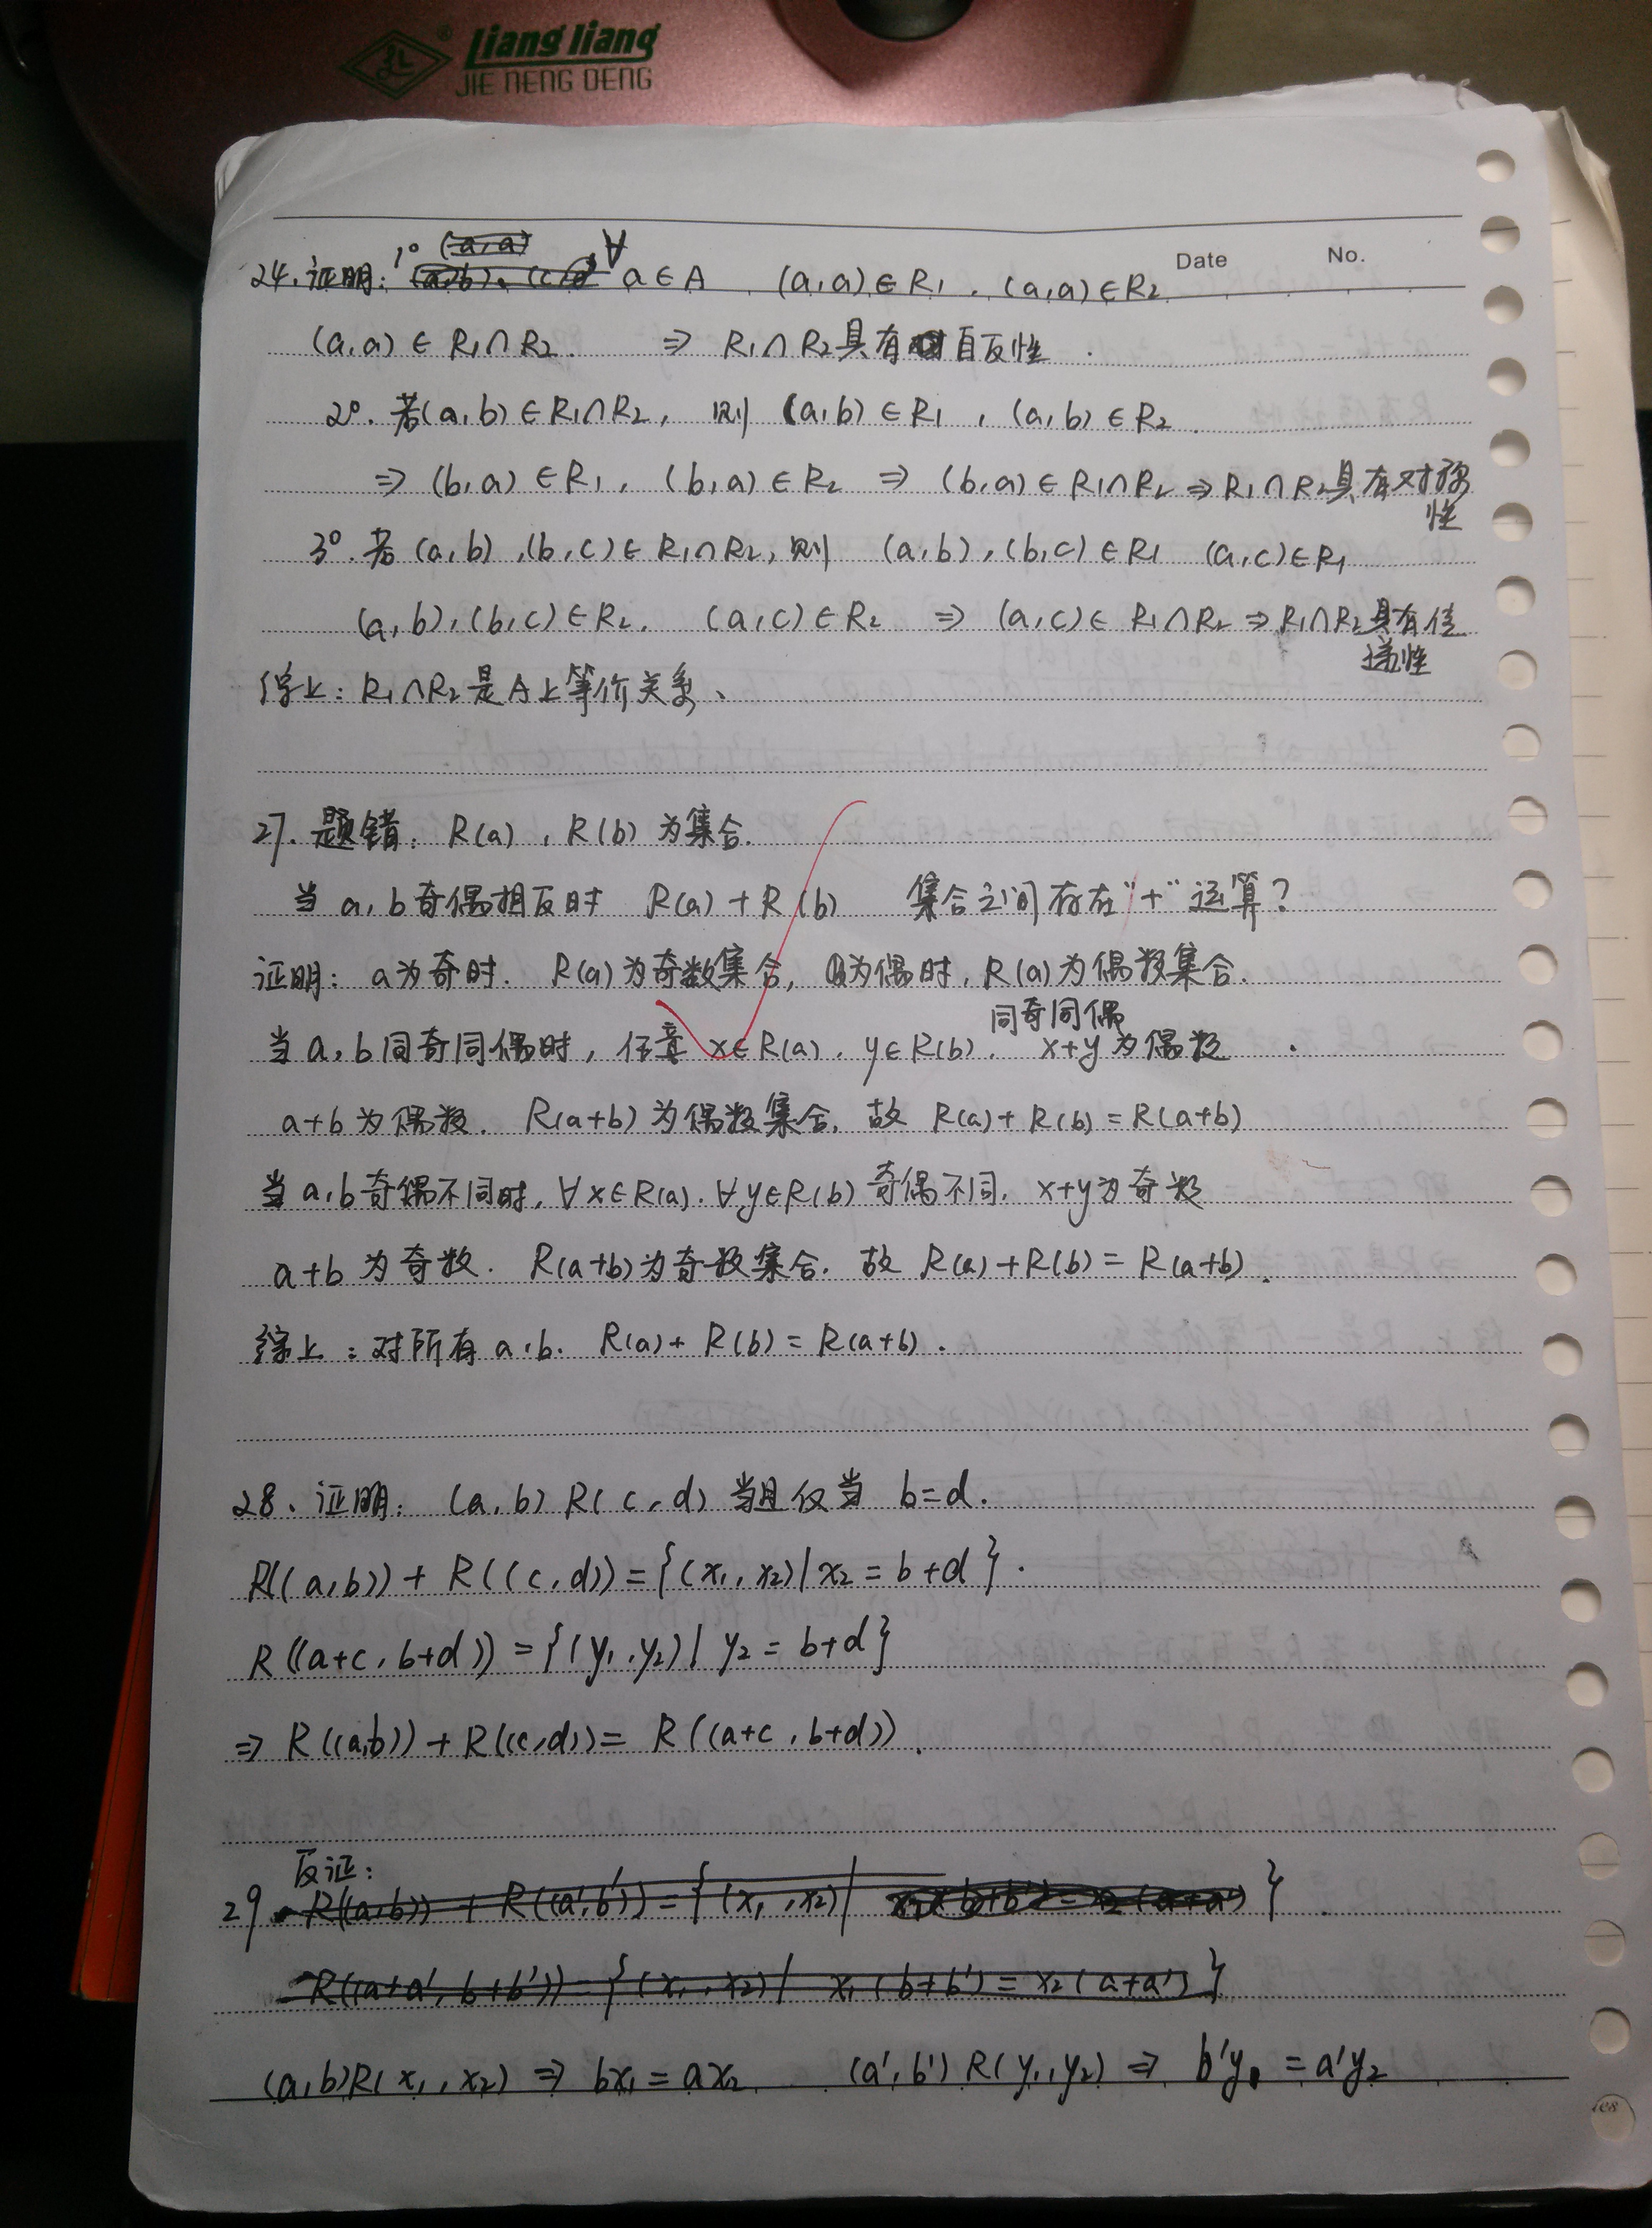 liangliang
JIE NENG DENG
Date No.
24. 证明: 1° ∀ a∈A (a,a)∈R₁, (a,a)∈R₂
(a,a)∈R₁∩R₂. ⇒ R₁∩R₂具有自反性.
2°. 若(a,b)∈R₁∩R₂, 则 (a,b)∈R₁, (a,b)∈R₂.
⇒ (b,a)∈R₁, (b,a)∈R₂ ⇒ (b,a)∈R₁∩R₂ ⇒ R₁∩R₂具有对称
性
3°. 若(a,b),(b,c)∈R₁∩R₂, 则 (a,b),(b,c)∈R₁ (a,c)∈R₁
(a,b),(b,c)∈R₂. (a,c)∈R₂ ⇒ (a,c)∈R₁∩R₂ ⇒ R₁∩R₂具有传
递性
综上: R₁∩R₂是A上等价关系、
27. 题错: R(a), R(b)为集合.
当a,b奇偶相反时 R(a)+R(b) 集合之间存在"+"运算?
证明: a为奇时. R(a)为奇数集合, a为偶时, R(a)为偶数集合.
同奇同偶
当a,b同奇同偶时, 任意 x∈R(a). y∈R(b). x+y为偶数.
a+b为偶数. R(a+b)为偶数集合, 故 R(a)+R(b)=R(a+b)
当a,b奇偶不同时, ∀x∈R(a). ∀y∈R(b)奇偶不同. x+y为奇数
a+b为奇数. R(a+b)为奇数集合. 故 R(a)+R(b)=R(a+b).
综上: 对所有a,b. R(a)+R(b)=R(a+b).
28. 证明: (a,b)R(c,d)当且仅当 b=d.
R((a,b))+R((c,d))={(x₁,x₂)|x₂=b+d}.
R((a+c,b+d))={(y₁,y₂)|y₂=b+d}
⇒ R((a,b))+R((c,d))=R((a+c,b+d)).
反证:
29. R((a,b))+R((a',b'))={(x₁,x₂)| }.
R((a+a',b+b'))={(x₁,x₂)| x₁(b+b')=x₂(a+a')}
(a,b)R(x₁,x₂) ⇒ bx₁=ax₂ (a',b')R(y₁,y₂) ⇒ b'y₁=a'y₂